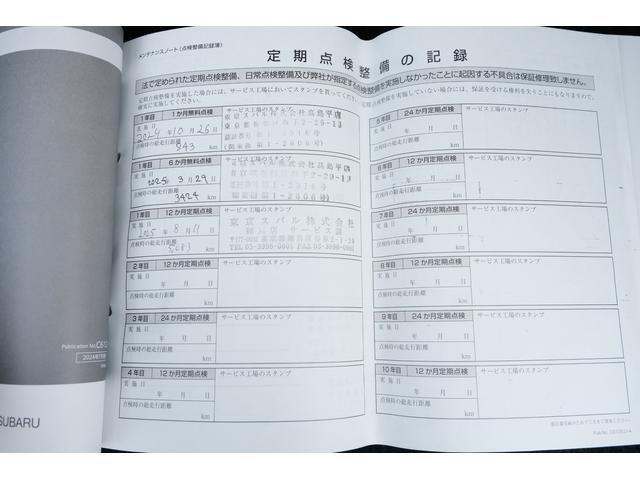 メンテナンスノート(点検整備記録簿)
定期点検整備の記録
法で定められた定期点検整備、日常点検整備及び弊社が指定する点検整備を実施しなかったことに起因する不具合は保証修理致しません。
定期点検整備を実施した場合には、サービス工場においてスタンプを買ってください。定期点検整備を実施していない場合には、保証を受ける権利を失うことにもなりますので、
確実に実施してください。
1年目 1か月無料点検 サービス工場のスタンプ
実施日
2024年10月26日
点検時の総走行距離
843 km
東京スバル株式会社高島平店
1年目 6か月無料点検 サービス工場のスタンプ
実施日
2025年3月29日
点検時の総走行距離
3424 km
1年目 12か月定期点検 サービス工場のスタンプ
実施日
2025年8月11日
点検時の総走行距離
km
東京スバル株式会社
サービス課
TEL03-3998-0001
2年目 12か月定期点検 サービス工場のスタンプ
実施日
年 月 日
点検時の総走行距離
km
3年目 24か月定期点検 サービス工場のスタンプ
実施日
年 月 日
点検時の総走行距離
km
4年目 12か月定期点検 サービス工場のスタンプ
実施日
年 月 日
点検時の総走行距離
km
5年目 24か月定期点検 サービス工場のスタンプ
実施日
年 月 日
点検時の総走行距離
km
6年目 12か月定期点検 サービス工場のスタンプ
実施日
年 月 日
点検時の総走行距離
km
7年目 24か月定期点検 サービス工場のスタンプ
実施日
年 月 日
点検時の総走行距離
km
8年目 12か月定期点検 サービス工場のスタンプ
実施日
年 月 日
点検時の総走行距離
km
9年目 24か月定期点検 サービス工場のスタンプ
実施日
年 月 日
点検時の総走行距離
km
10年目 12か月定期点検 サービス工場のスタンプ
実施日
年 月 日
点検時の総走行距離
km
Publication No.
SUBARU